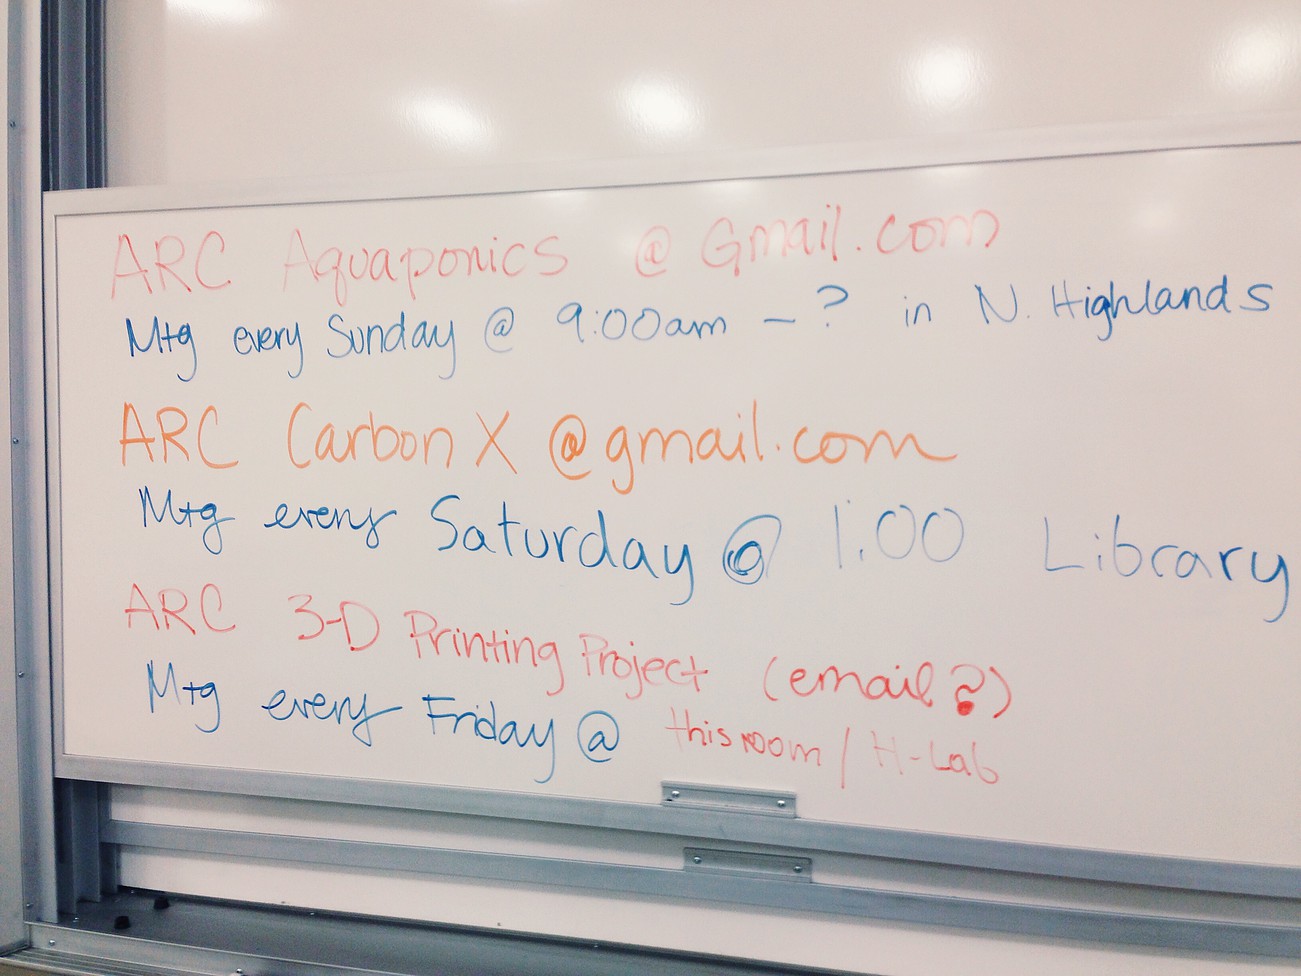 ARC Aquaponics @ Gmail.com
Mtg every Sunday @ 9:00am - ? in N. Highlands
ARC Carbon X @gmail.com
Mtg every Saturday @ 1:00 Library
ARC 3-D Printing Project (email?)
Mtg every Friday @ this room / H-Lab